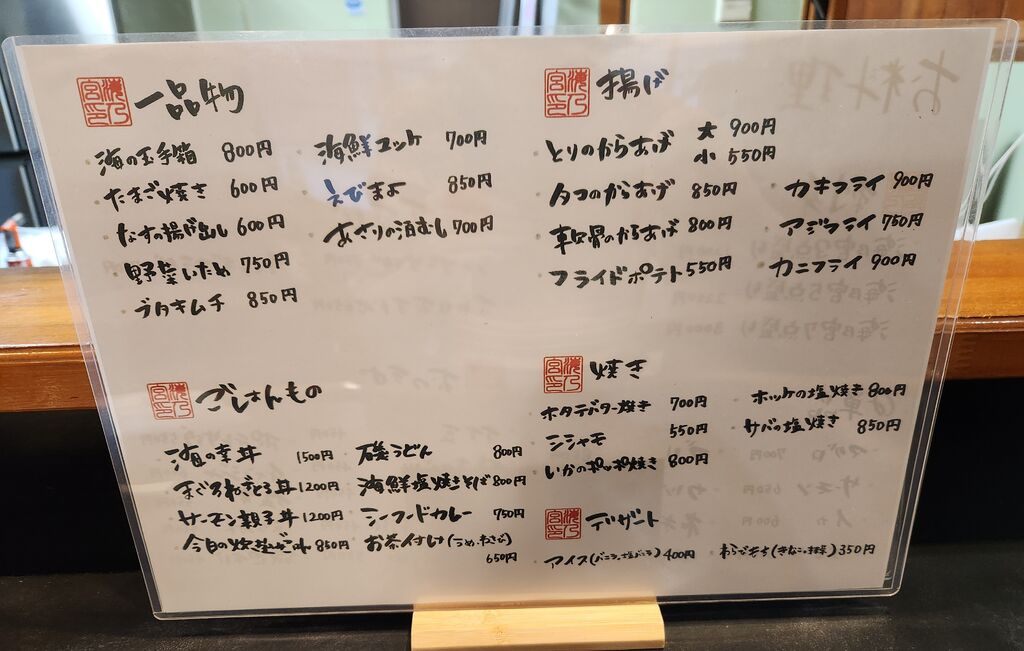 一品物
海の玉手箱 800円
たまご焼き 600円
なすの揚げ出し 600円
野菜いため 750円
ブタキムチ 850円
海鮮ユッケ 700円
えびまよ 850円
あさりの酒むし 700円
揚げ
とりのからあげ 大 900円
小 550円
タコのからあげ 850円
軟骨のからあげ 800円
フライドポテト 550円
カキフライ 900円
アジフライ 750円
カニフライ 900円
ごはんもの
海の幸丼 1500円
まぐろねぎとろ丼 1200円
サーモン親子丼 1200円
今日の炊込ごはん 850円
磯うどん 800円
海鮮塩焼きそば 800円
シーフードカレー 750円
お茶付け(うめ、わさび)
650円
焼き
ホタテバター焼き 700円
シシャモ 550円
いかのポッポ焼き 800円
ホッケの塩焼き 800円
サバの塩焼き 850円
デザート
アイス(バニラ、塩バニラ) 400円
わらびもち(きなこ、抹茶) 350円